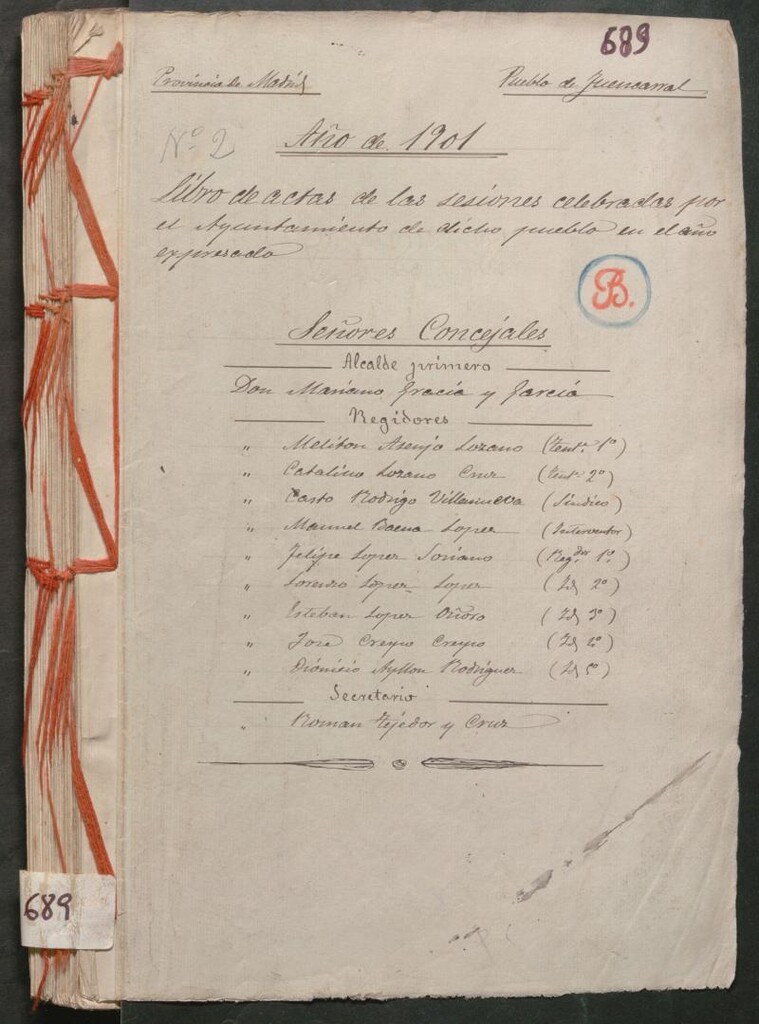 689
Provincia de Madrid
Pueblo de Fuencarral
Nº 2
Año de 1901
Libro de actas de las sesiones celebradas por
el Ayuntamiento de dicho pueblo en el año
expresado
B.
Señores Concejales
Alcalde primero
Don Mariano Gracia y García
Regidores
" Meliton Asenjo Lozano (Tente. 1º)
" Catalino Lozano Cruz (Tente. 2º)
" Casto Rodrigo Villanueva (Síndico)
" Manuel Baena Lopez (Interventor)
" Felipe Lopez Soriano (Regdor 1º)
" Lorenzo López Lopez (Id 2º)
" Esteban Lopez Oñoro (Id 3º)
" José Crespo Crespo (Id 4º)
" Dionisio Ayllon Rodriguez (Id 5º)
Secretario
" Roman Tejedor y Cruz
689